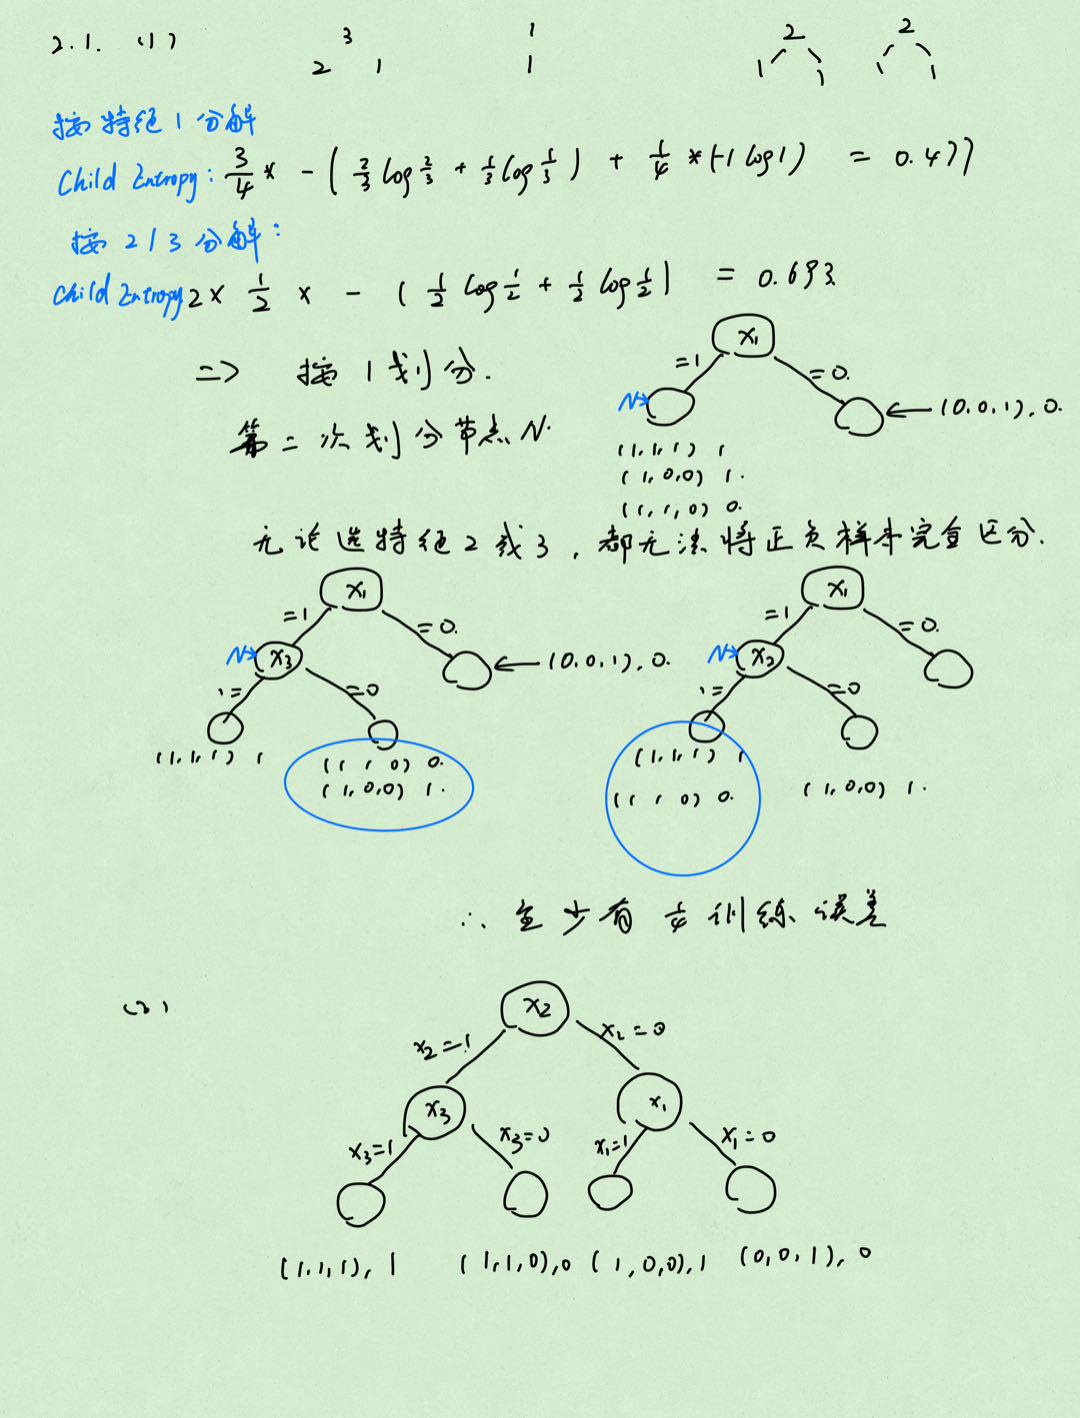 2.1. (1) 3 1 2 2
2 1 1 1 1 1 1
按特征1分解
Child Entropy: 3/4 * -(2/3 log 2/3 + 1/3 log 1/3) + 1/4 * (-1 log 1) = 0.477
按2/3分解:
Child Entropy 2 × 1/2 × -(1/2 log 1/2 + 1/2 log 1/2) = 0.693
=> 按1划分.
x₁
=1 =0.
N→ ←(0,0,1),0.
第二次划分节点N.
(1,1,1) 1
(1,0,0) 1.
(1,1,0) 0.
无论选特征2或3,都无法将正负样本完全区分.
x₁ x₁
=1 =0. =1 =0.
N→ x₃ ←(0,0,1),0. N→ x₂
1= =0 1= =0
(1,1,1) 1 (1,1,0) 0. (1,1,1) 1
(1,0,0) 1. (1,1,0) 0. (1,0,0) 1.
∴ 至少有 1/4 训练误差
(2)
x₂
x₂=1 x₂=0
x₃ x₁
x₃=1 x₃=0 x₁=1 x₁=0
(1,1,1),1 (1,1,0),0 (1,0,0),1 (0,0,1),0